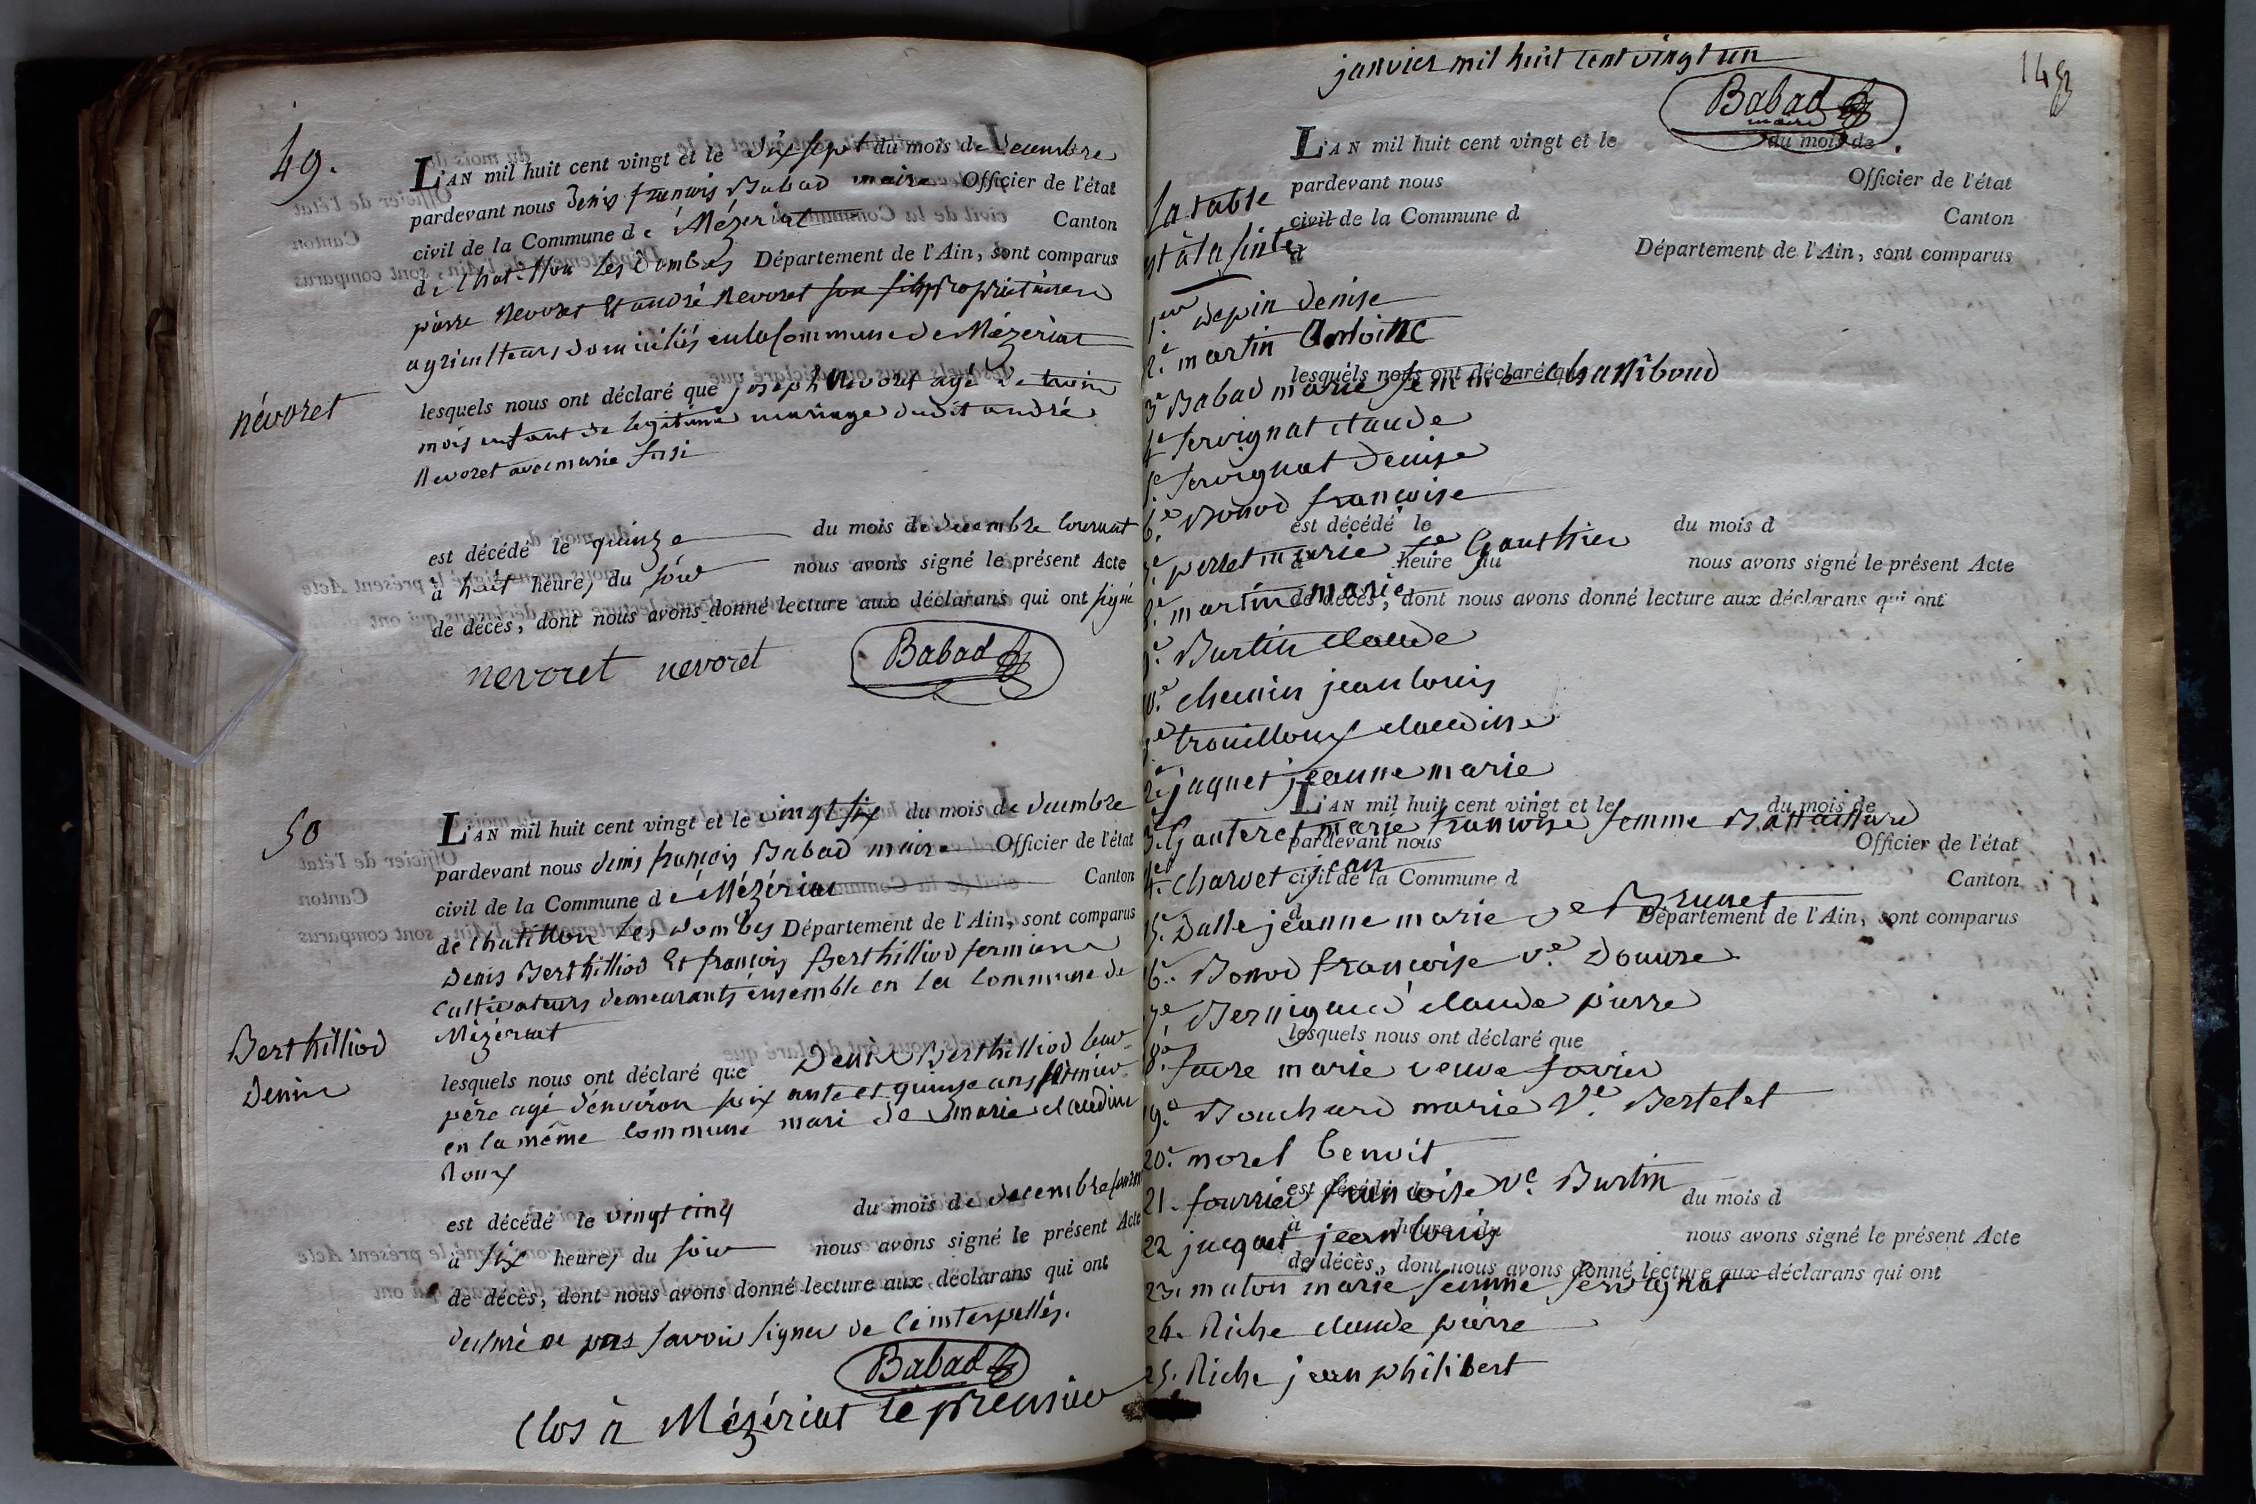 49.
L'AN mil huit cent vingt et le dix sept du mois de decembre
pardevant nous denis françois Babad maire Officier de l'état
civil de la Commune de Mézériat Canton
de Chatillon les Dombes Département de l'Ain, sont comparus
pierre Nevoret Et andré Nevoret son fils propriétaires
agriculteurs domiciliés en la Commune de Mézériat
névoret
lesquels nous ont déclaré que joseph Nevoret agé de
mois enfant de legitime mariage dudit andré
Nevoret avec marie
est décédé le quinze du mois de decembre Courant
à huit heures du soir nous avons signé le présent Acte
de décès, dont nous avons donné lecture aux déclarans qui ont signé
nevoret nevoret Babad
50
L'AN mil huit cent vingt et le vingt six du mois de decembre
pardevant nous denis françois Babad maire Officier de l'état
civil de la Commune de Mézériat Canton
de Chatillon les Dombes Département de l'Ain, sont comparus
Denis Berthilliod Et françois Berthilliod fermiers
Cultivateurs demeurants ensemble en la Commune de
Mézériat
Berthilliod
Denis
lesquels nous ont déclaré que Denis Berthilliod leur
père agé d'environ soixante et quinze ans fermier
en la même Commune mari de marie claudine
Roux
est décédé le vingt cinq du mois de decembre courant
à six heures du soir nous avons signé le présent Acte
de décès, dont nous avons donné lecture aux déclarans qui ont
declaré ne pas savoir signer de ce interpellés.
Babad
Clos à Mézériat le premier
janvier mil huit cent vingt un
Babad
maire
L'AN mil huit cent vingt et le du mois de
pardevant nous Officier de l'état
civil de la Commune d Canton
Département de l'Ain, sont comparus
la table
est à la suite
1er depin denise
2e martin Antoine
lesquels nous ont déclaré que
3e Babad marie femme chassiboud
4e fervignat claude
5e fervignat denise
6e Bonod françoise
est décédé le du mois d
7e perret marie fe Gauthier
à heure du nous avons signé le présent Acte
8e martin marie
de décès, dont nous avons donné lecture aux déclarans qui ont
9e Burtin claude
10e chemin jean louis
11e trouilloux claudine
12e jaquet jeanne marie
L'AN mil huit cent vingt et le du mois de
13e Gauteret marie françoise femme
pardevant nous Officier de l'état
14e charvet jean
civil de la Commune d Canton
15e Dalle jeanne marie ve Brunet
d Département de l'Ain, sont comparus
16e Bonod françoise ve Douvre
17e Bernigaud claude pierre
lesquels nous ont déclaré que
18e favre marie veuve favier
19e Bouchard marie Ve Bertelet
20e morel benoit
21. fourrier françoise ve Burtin
est décédé le du mois d
22 jacquet jean louis
à heure du nous avons signé le présent Acte
de décès, dont nous avons donné lecture aux déclarans qui ont
23. maton marie femme fervignat
24. Riche claude pierre
25. Riche jean philibert